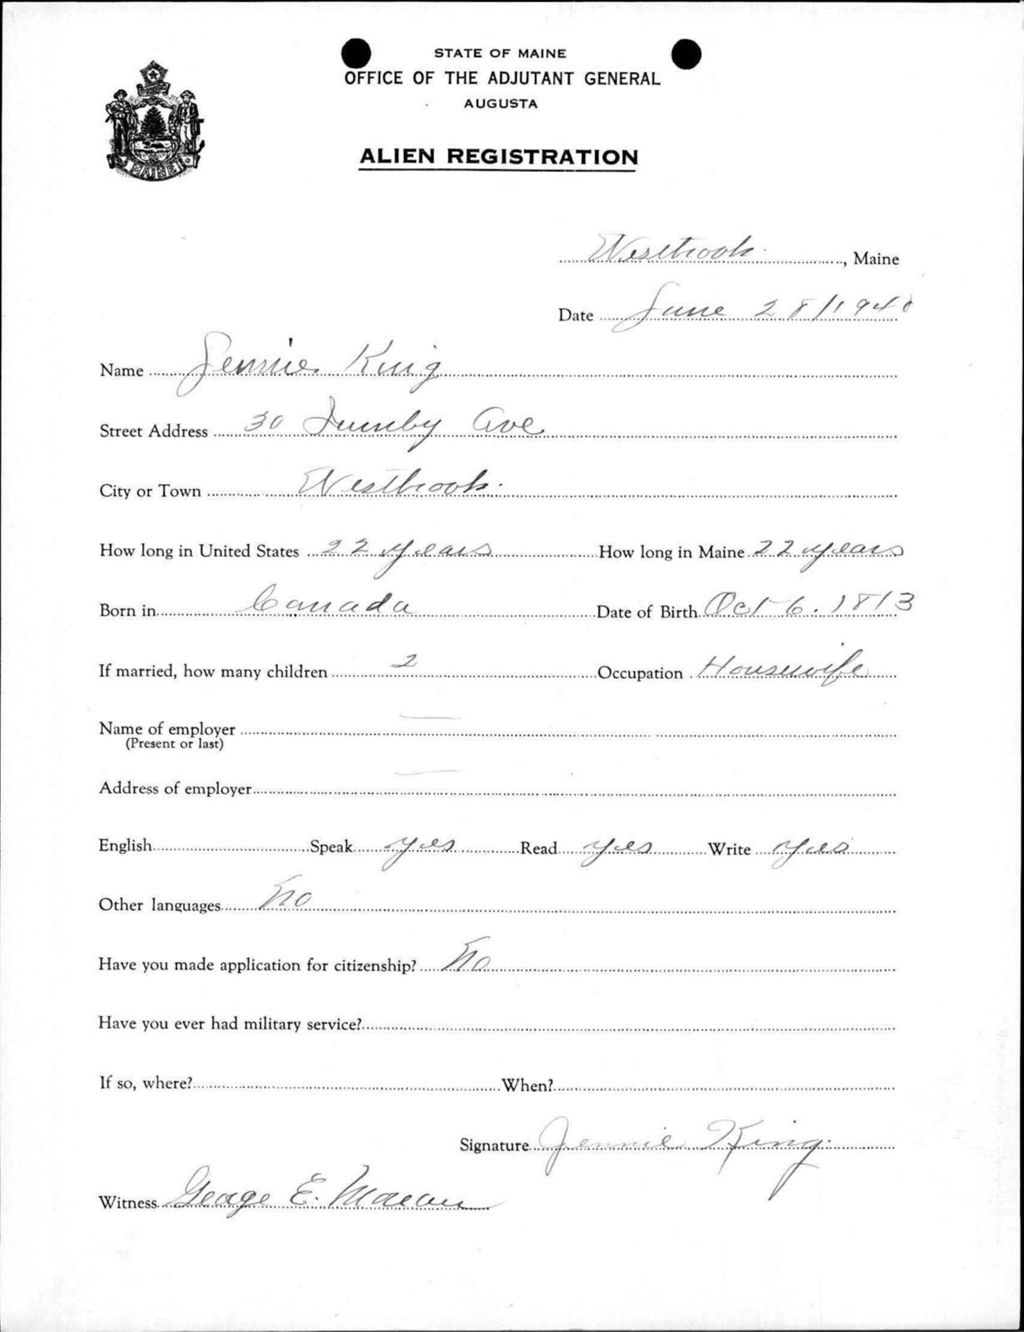 STATE OF MAINE
OFFICE OF THE ADJUTANT GENERAL
AUGUSTA
ALIEN REGISTRATION
MAINE
Westbrook, Maine
Date June 28/1940
Name Jennie King
Street Address 30 Ave
City or Town Westbrook.
How long in United States 22 years How long in Maine 22 years
Born in Canada Date of Birth Oct 6. 1813
If married, how many children 2 Occupation Housewife
Name of employer —
(Present or last)
Address of employer —
English Speak yes Read yes Write yes
Other languages No
Have you made application for citizenship? No
Have you ever had military service?
If so, where? When?
Signature Jennie King.
Witness George E.